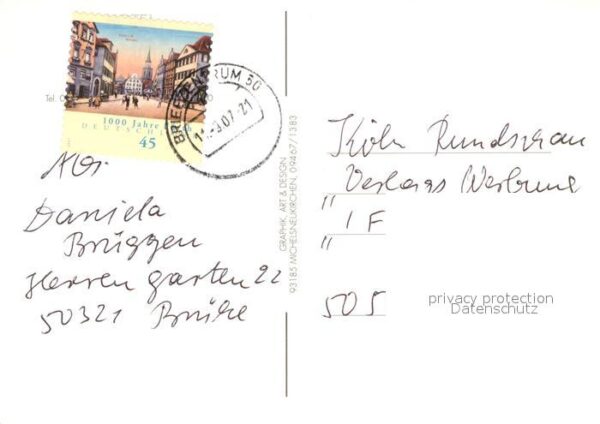 1000 Jahre
DEUTSCHLAND
45
BRIEFZENTRUM 50
07-21
Tel. 0
Abs.
Daniela
Brüggen
Herrengarten 22
50321 Brühl
GRAPHIK, ART & DESIGN
93185 MICHELSNEUKIRCHEN, 09467/1383
Köln Rundschau
Verlags Werbung
" 1 F
"
505
privacy protection
Datenschutz